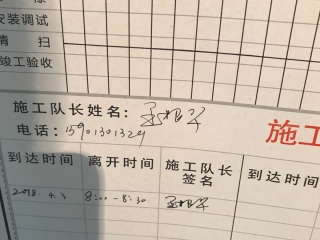 安装调试
清扫
竣工验收
施工队长姓名：
电话：15901301329
施工
到达时间 离开时间 施工队长签名 到达时间
2018.4.3 8:00-8:30